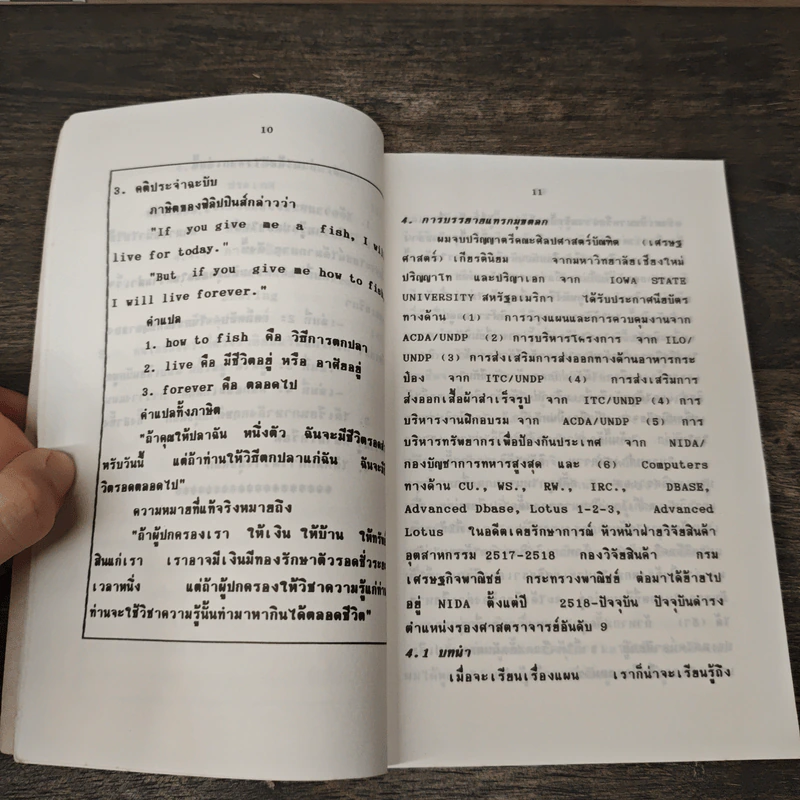 10
3. คติประจำฉะบับ
ภาษิตของฟิลิปปินส์กล่าวว่า
"If you give me a fish, I
live for today."
"But if you give me how to fish
I will live forever."
คำแปล
1. how to fish คือ วิธีการตกปลา
2. live คือ มีชีวิตอยู่ หรือ อาศัยอยู่
3. forever คือ ตลอดไป
คำแปลทั้งภาษิต
"ถ้าคุณให้ปลาฉัน หนึ่งตัว ฉันจะมีชีวิตรอด
หรับวันนี้ แต่ถ้าท่านให้วิธีตกปลาแก่ฉัน
วิตรอดตลอดไป"
ความหมายที่แท้จริงหมายถึง
"ถ้าผู้ปกครองเรา ให้เงิน ให้บ้าน
สินแก่เรา เราอาจมีเงินมีทองรักษาตัวรอดชั่วระยะ
เวลาหนึ่ง แต่ถ้าผู้ปกครองให้วิชาความรู้แก่ท่าน
ท่านจะใช้วิชาความรู้นั้นทำมาหากินได้ตลอดชีวิต"
11
4. การบรรยายแทรกมุขตลก
ผมจบปริญญาตรีคณะศิลปศาสตร์บัณฑิต (เศรษฐ
ศาสตร์) เกียรตินิยม จากมหาวิทยาลัยเชียงใหม่
ปริญญาโท และปริญาเอก จาก IOWA STATE
UNIVERSITY สหรัฐอเมริกา ได้รับประกาศนียบัตร
ทางด้าน (1) การวางแผนและการควบคุมงานจาก
ACDA/UNDP (2) การบริหารโครงการ จาก ILO/
UNDP (3) การส่งเสริมการส่งออกทางด้านอาหารกระ
ป๋อง จาก ITC/UNDP (4) การส่งเสริมการ
ส่งออกเสื้อผ้าสำเร็จรูป จาก ITC/UNDP (4) การ
บริหารงานฝึกอบรม จาก ACDA/UNDP (5) การ
บริหารทรัพยากรเพื่อป้องกันประเทศ จาก NIDA/
กองบัญชาการทหารสูงสุด และ (6) Computers
ทางด้าน CU., WS., RW., IRC., DBASE,
Advanced Dbase, Lotus 1-2-3, Advanced
Lotus ในอดีตเคยรักษาการณ์ หัวหน้าฝ่ายวิจัยสินค้า
อุตสาหกรรม 2517-2518 กองวิจัยสินค้า กรม
เศรษฐกิจพาณิชย์ กระทรวงพาณิชย์ ต่อมาได้ย้ายไป
อยู่ NIDA ตั้งแต่ปี 2518-ปัจจุบัน ปัจจุบันดำรง
ตำแหน่งรองศาสตราจารย์อันดับ 9
4.1 บทนำ
เมื่อจะเรียนเรื่องแผน เราก็น่าจะเรียนรู้ถึง